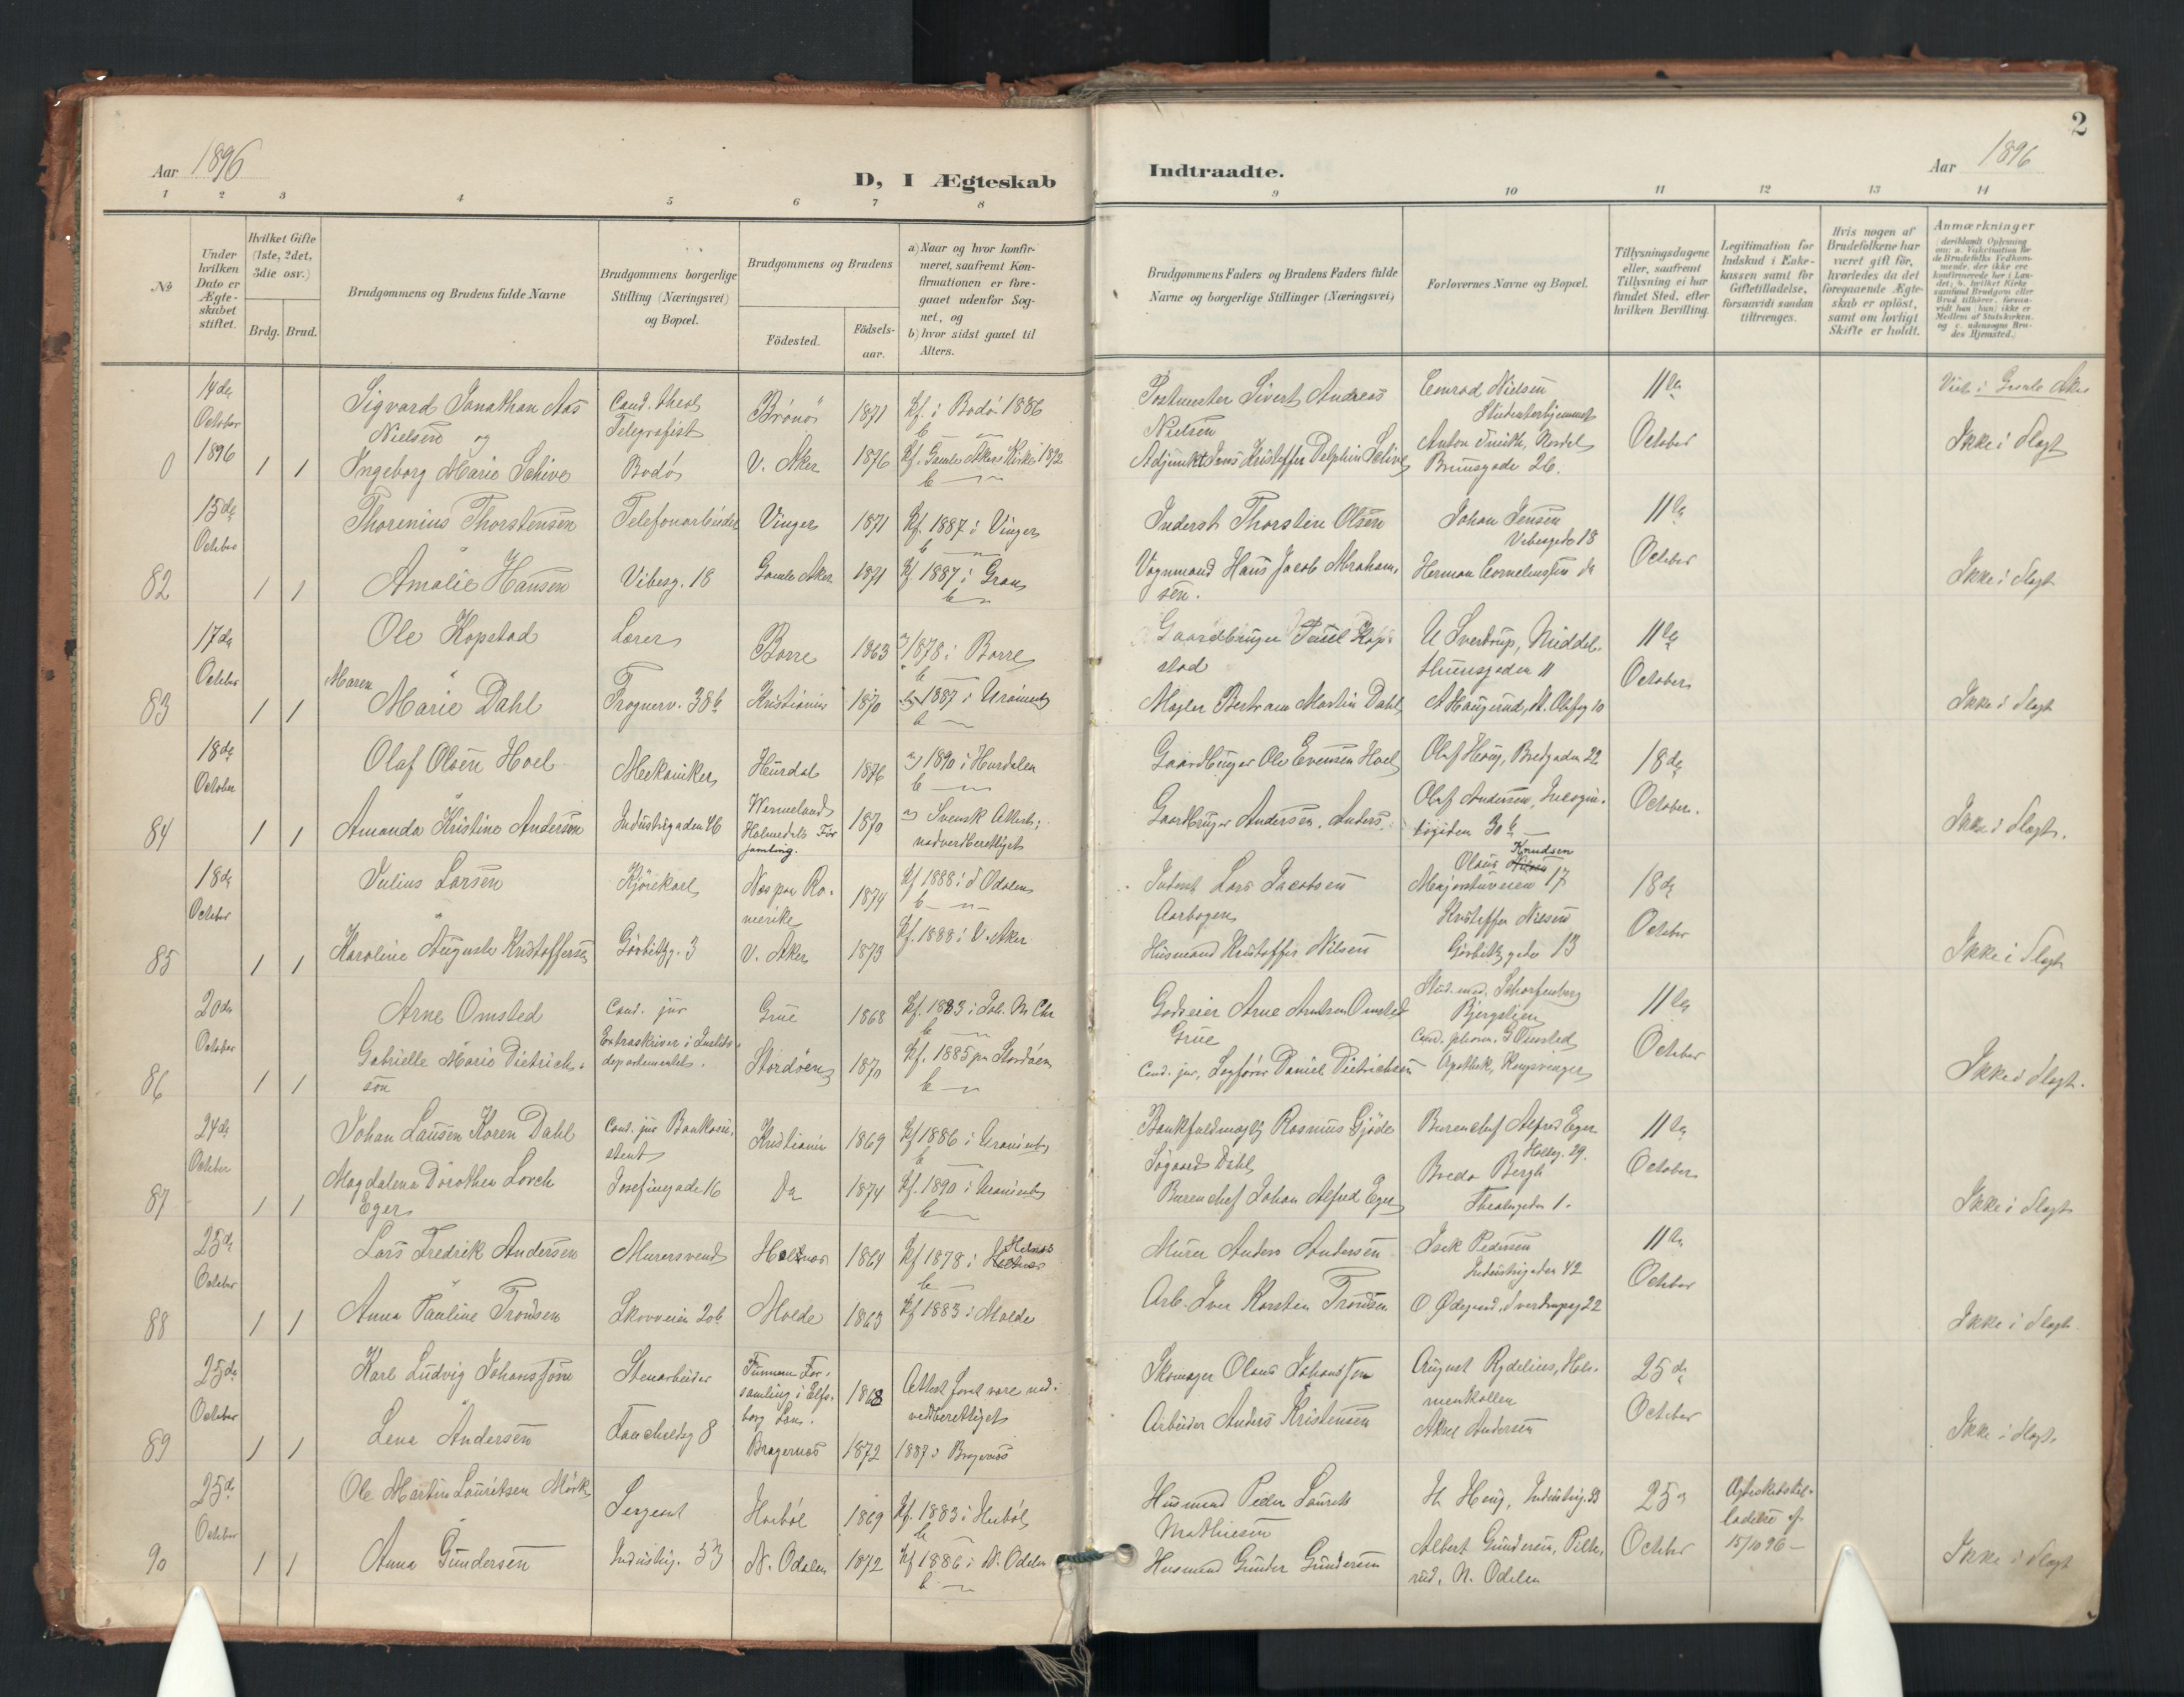 Aar 1896
D, I Ægteskab
Indtraadte.
Aar 1896
2
1 2 3 4 5 6 7 8 9 10 11 12 13 14
No
Under hvilken Dato er Ægteskabet stiftet.
Hvilket Gifte (1ste, 2det, 3die osv.)
Brdg. Brud.
Brudgommens og Brudens fulde Navne
Brudgommens borgerlige Stilling (Næringsvei) og Bopæl.
Brudgommens og Brudens
Födested.
Födsels-aar.
a) Naar og hvor konfirmeret, saafremt Konfirmationen er foregaaet udenfor Sognet, og
b) hvor sidst gaaet til Alters.
Brudgommens Faders og Brudens Faders fulde Navne og borgerlige Stillinger (Næringsvei)
Forlovernes Navne og Bopæl.
Tillysningsdagene eller, saafremt Tillysning ei har fundet Sted, efter hvilken Bevilling.
Legitimation for Indskud i Enkekassen samt for Giftetilladelse, forsaavidt saadan tiltrænges.
Hvis nogen af Brudefolkene har været gift för, hvorledes da det foregaaende Ægteskab er oplöst, samt om lovligt Skifte er holdt.
Anmærkninger
0
14de October 1896
1 1
Sigvard Jonathan Aas Nielsen og
Ingeborg Marie Schive
Cand. theol. Telegrafist
Bodö
Brönö 1871 Kf. i Bodö 1886
V. Aker 1876 Kf. Gamle Akers Kirke 1892
Postmester Sivert Andreas Nielsen
Adjunkt Jens Kristoffer Delphin Schive
Conrad Nielsen
Studenterhjemmet
Brunsgade 26.
11te October
Ikke i Slægt
82
15de October
1 1
Thorenius Thorstensen
Amalie Hansen
Telefonarbeider
Vibesg. 18
Vinger 1871 Kf. 1887 i Vinger
Gamle Aker 1871 Kf. 1887 i Gran
Inderst Thorstein Olsen
Vognmand Hans Jacob Abrahamsen.
Johan Jensen
Vibesgade 18
Herman Corneliussen do
11te October
Ikke i Slægt
83
17de October
1 1
Ole Kopstad
Maren Marie Dahl
Lærer
Frognerv. 38b
Borre 1863 a) 1878 i Borre
Kristiania 1870 a) 1887 i Uranienb.
Gaardbruger Paul Kopstad
Mægler Bertram Martin Dahl
U Sverdrup, Middelthunsgaden 11
A Haugerud, St. Olafsg 10
11te October
Ikke i Slægt
84
18de October
1 1
Olaf Olsen Hoel
Amanda Kristine Anderson
Mekaniker
Industrigaden 46
Hurdal 1876 a) 1890 i Hurdalen
Wermeland Holmedals Forsamling. 1870 a) Svensk Attest; nadverdberettiget
Gaardbruger Ole Evensen Hoel
Gaardbruger Andersen, Anders
Olaf Haug, Bredgaden 22
Olaf Andersen,
18de October.
Ikke i Slægt.
85
18de October
1 1
Julius Larsen
Karoline Augusta Kristoffersen
Kjörekarl
Görbitzg. 3
Næs paa Romerike 1874 Kf 1888 i S Odalen
V. Aker 1873 Kf. 1888 i V. Aker
Inderst Lars Jacobsen
Aarbogen
Husmand Kristoffer Nilsen
Olaus Knudsen
Majorstuveien 17
Kristoffer Nilsen
Görbitzgaden 13
18de October
Ikke i Slægt
86
20de October
1 1
Arne Omsted
Gabrielle Marie Dietrichson
Cand. jur
Extraskriver i Justitsdepartementet.
Grue 1868 Kf. 1883 i Joh. M. Chr
Stordöen 1870 Kf. 1885 paa Stordöen
Godseier Arne Arntsen Omsted
Grue
Cand. jur, Sagförer Daniel Dietrichson
Stud. med. Scharfenberg
Bjergslien
Cand. pharm. G Omsted
Apothek, Kongsvinger
11te October
Ikke i Slægt.
87
24de October
1 1
Johan Lausen Koren Dahl
Magdalena Dorothea Lorch Eger
Cand. jur Bankassistent
Josefinegade 16
Kristiania 1869 Kf 1886 i Uranienb
Do 1874 Kf. 1890 i Uranienb
Bankfuldmægtig Rasmus Gjöde Sögaard Dahl
Bureauchef Johan Alfred Eger
Bureauchef Alfred Eger
Holbg. 29.
Breda Bergh
Theatergaden 1.
11te October
Ikke i Slægt
88
25de October
1 1
Lars Fredrik Andersen
Anna Pauline Tronsen
Murersvend
Skovveien 20b
1864 Kf 1878 i
Molde 1863 Kf 1883 i Molde
Murer Anders Andersen
Arb. Iver Karsten Tronsen
Isak Pedersen
Industrigaden 42
O Ødegaard, Sverdrupsg 22
11te October
Ikke i Slægt
89
25de October
1 1
Karl Ludvig Johanssson
Lena Andersen
Stenarbeider
Fauchaldsg 8
1868 Attest for at være nadverdberettiget
Bragernæs 1872 1887 i Bragernæs
Skomager Olaus Johansson
Arbeider Anders Kristensen
August Rydelius, Holmenkollen
Aksel Andersen
25de October
Ikke i Slægt.
90
25de October
1 1
Ole Martin Lauritsen Mörk
Anna Gundersen
Sergent
Industrig. 53
Haaböl 1869 Kf. 1883 i
N. Odalen 1872 Kf 1886 i N. Odalen
Husmand Peder Laurits Mathiesen
Husmand Gunder Gundersen
H. Haug, Industrig.
Albert Gundersen, N. Odalen
25de October
Ægteskabstilladelse af 15/10 96
Ikke i Slægt